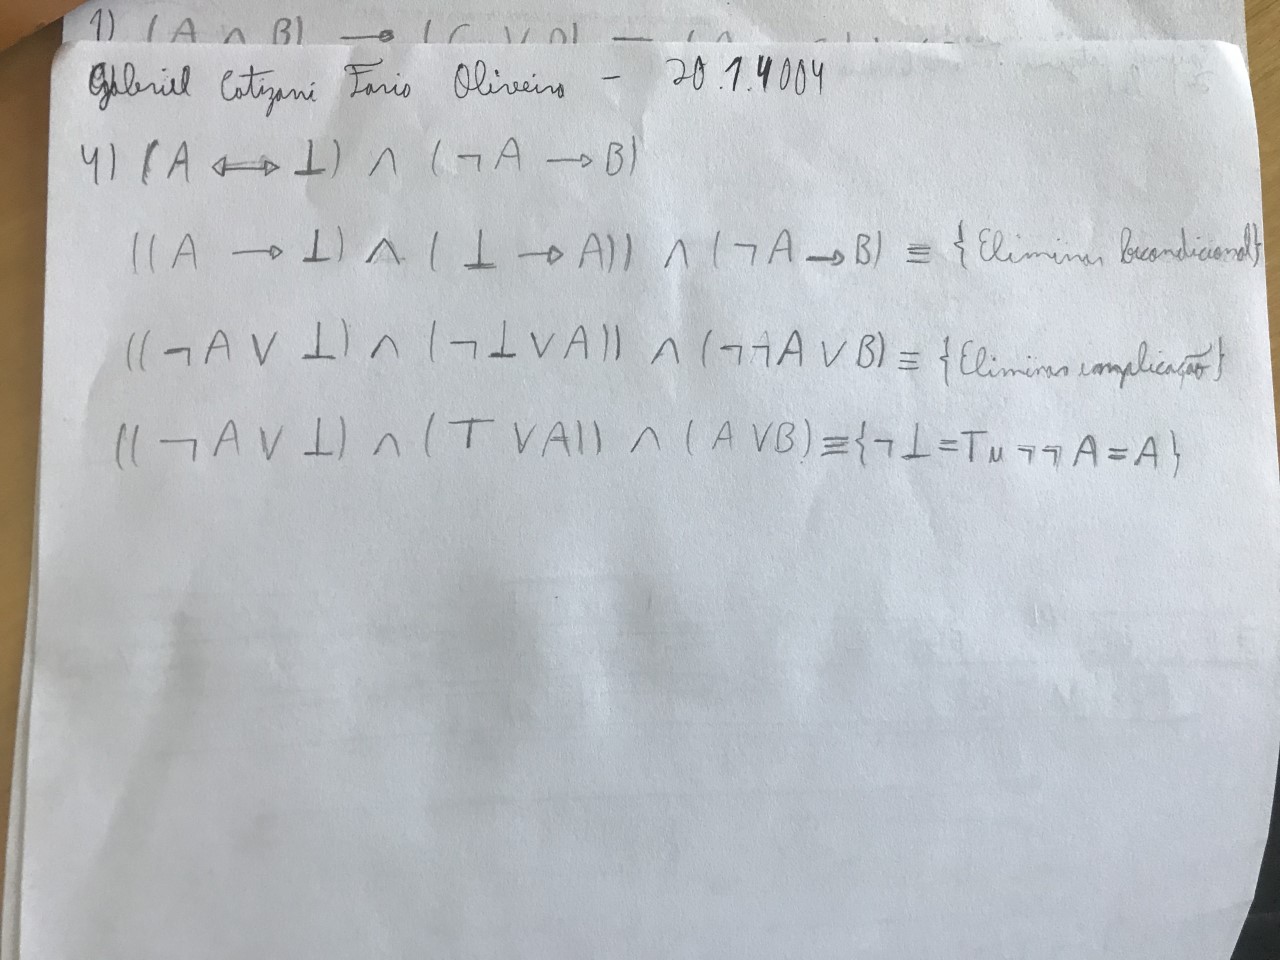 1) (A ∧ B) → (C ∨ D)
Gabriel Catizani Faria Oliveira - 20.1.4004
4) (A ⟷ ⊥) ∧ (¬A → B)
((A → ⊥) ∧ (⊥ → A)) ∧ (¬A → B) ≡ {Eliminar bicondicional}
((¬A ∨ ⊥) ∧ (¬⊥ ∨ A)) ∧ (¬¬A ∨ B) ≡ {Eliminar implicação}
((¬A ∨ ⊥) ∧ (⊤ ∨ A)) ∧ (A ∨ B) ≡ {¬⊥=⊤ ¬¬A=A}